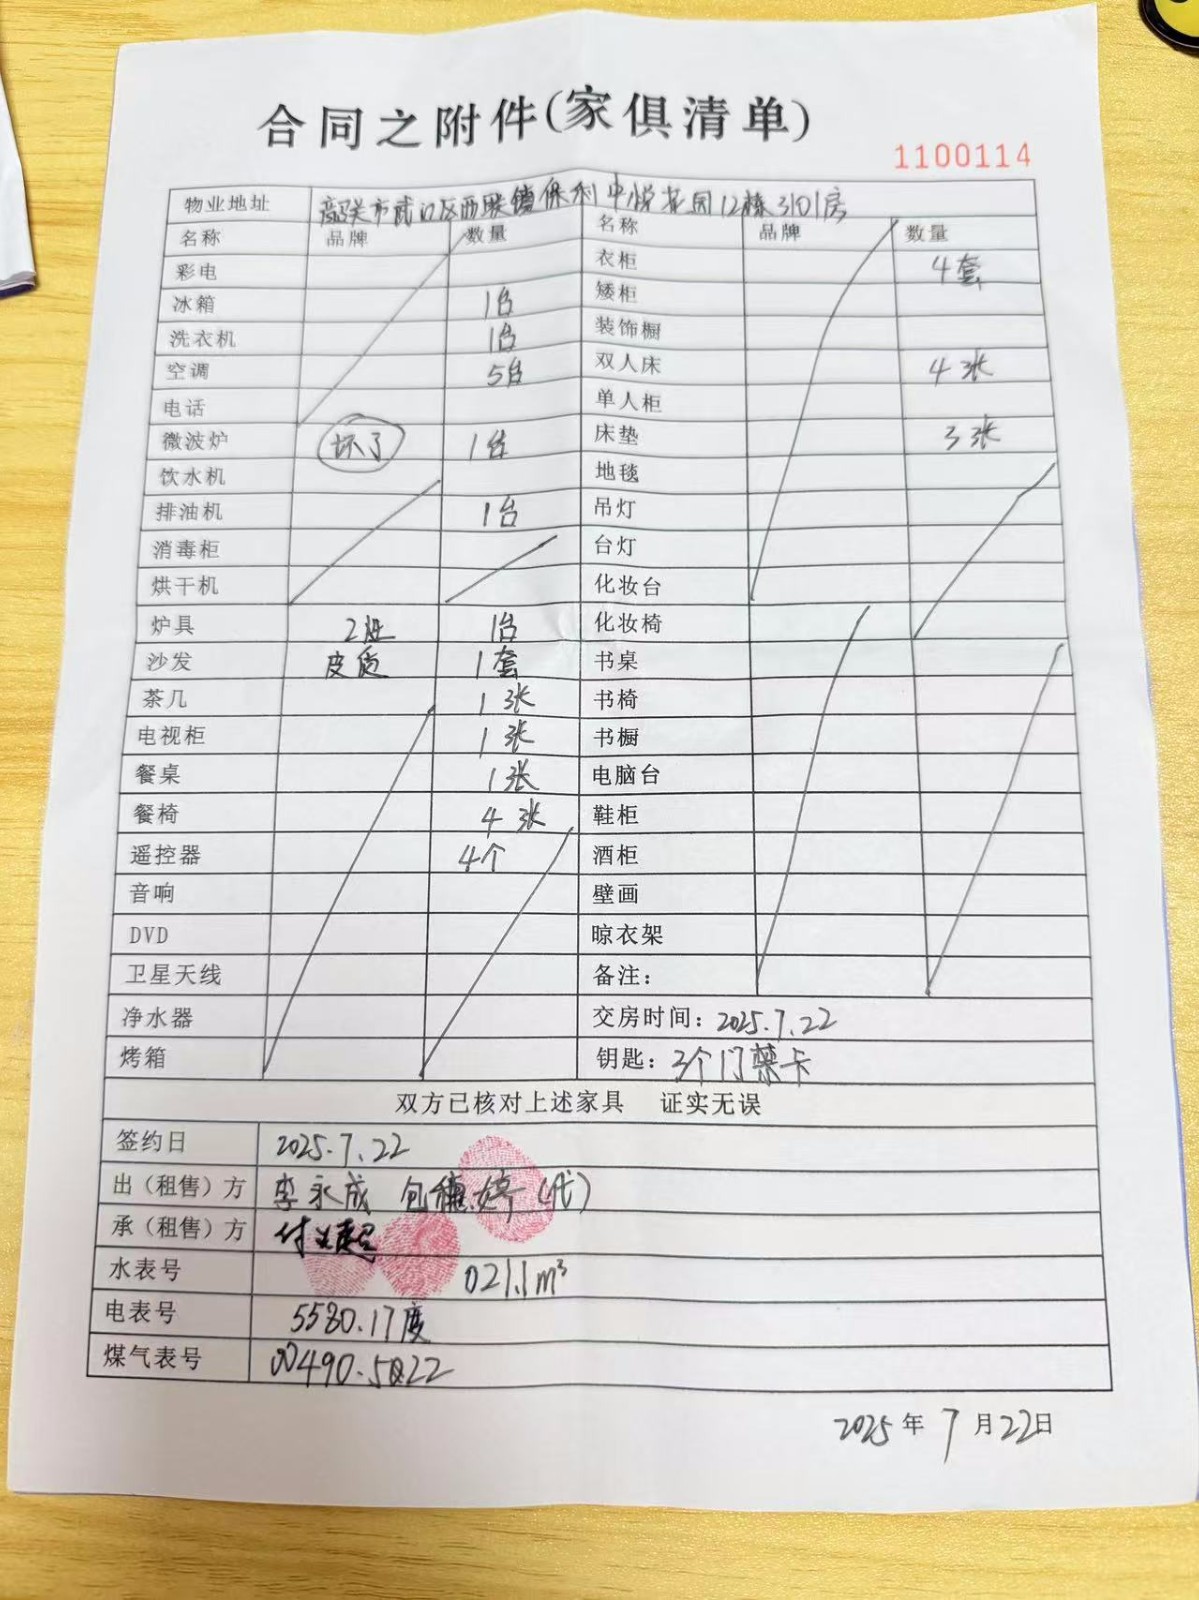 合同之附件(家俱清单)
1100114
物业地址 韶关市武江区西联镇保利中悦花园12栋3101房
名称 品牌 数量 名称 品牌 数量
彩电 衣柜 4套
冰箱 1台 矮柜
洗衣机 1台 装饰橱
空调 5台 双人床 4张
电话 单人柜
微波炉 坏了 1台 床垫 3张
饮水机 地毯
排油机 1台 吊灯
消毒柜 台灯
烘干机 化妆台
炉具 2灶 1台 化妆椅
沙发 皮质 1套 书桌
茶几 1张 书椅
电视柜 1张 书橱
餐桌 1张 电脑台
餐椅 4张 鞋柜
遥控器 4个 酒柜
音响 壁画
DVD 晾衣架
卫星天线 备注：
净水器 交房时间：2025.7.22
烤箱 钥匙：3个门禁卡
双方已核对上述家具 证实无误
签约日 2025.7.22
出（租售）方 李永成 包 婷（代）
承（租售）方 付
水表号 021.1m³
电表号 5580.17度
煤气表号 00490.5022
2025年7月22日